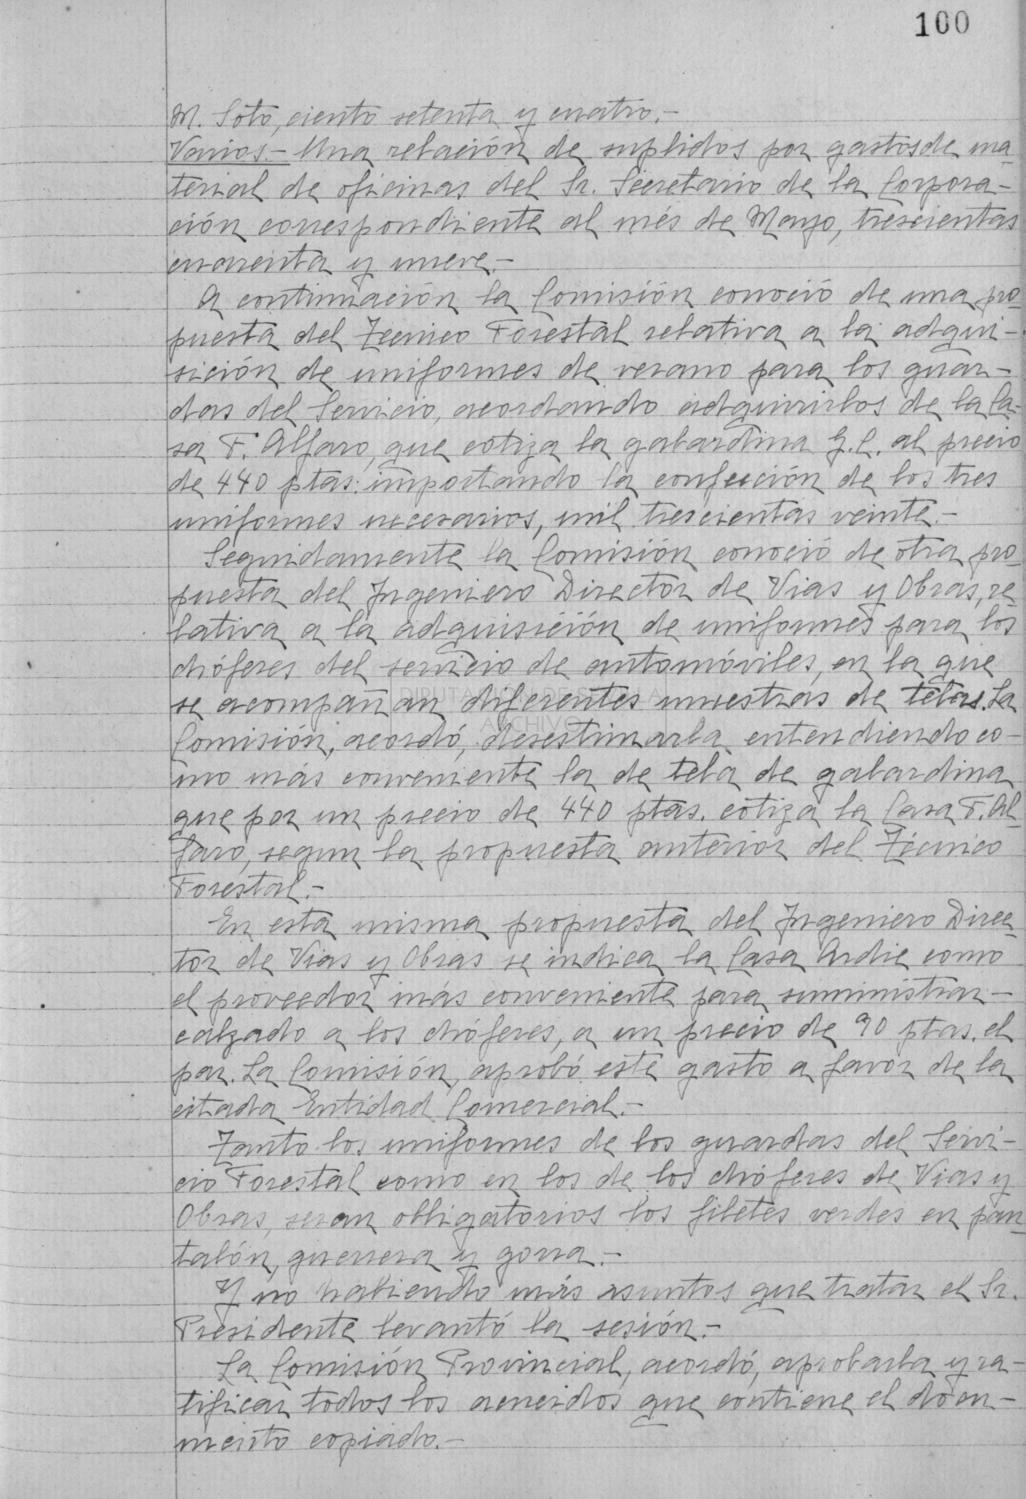 100
M. Soto, ciento setenta y cuatro.-
Varios.- Una relación de suplidos por gastos de ma-
terial de oficinas del Sr. Secretario de la Corpora-
ción correspondiente al més de Mayo, trescientas
cuarenta y nueve.-
A continuación la Comisión conoció de una pro-
puesta del Técnico Forestal relativa a la adqui-
sición de uniformes de verano para los guar-
das del Servicio, acordando adquirirlos de la Ca-
sa F. Alfaro, que cotiza la gabardina G.C. al precio
de 440 ptas. importando la confección de los tres
uniformes necesarios, mil trescientas veinte.-
Seguidamente la Comisión conoció de otra pro-
puesta del Ingeniero Director de Vias y Obras, re
lativa a la adquisición de uniformes para los
chóferes del servicio de automóviles, en la que
se acompañan diferentes muestras de telas. La
DIPUTACION DE SORIA
ARCHIVO
Comisión, acordó, desestimarla entendiendo co-
mo más conveniente la de tela de gabardina
que por un precio de 440 ptas. cotiza la Casa F. Al-
faro, segun la propuesta anterior del Técnico
Forestal.-
En esta misma propuesta del Ingeniero Direc-
tor de Vias y Obras se indica la Casa Ardie como
el proveedor más conveniente para suministrar-
calzado a los chóferes, a un precio de 90 ptas. el
par. La Comisión, aprobó este gasto a favor de la
citada Entidad Comercial.-
Tanto los uniformes de los guardas del Servi-
cio Forestal como en los de los chóferes de Vias y
Obras, seran obligatorios los filetes verdes en pan-
talón, guerrera y gorra.-
Y no habiendo más asuntos que tratar el Sr.
Presidente levantó la sesión.-
La Comisión Provincial, acordó, aprobarla y ra-
tificar todos los acuerdos que contiene el docu-
mento copiado.-